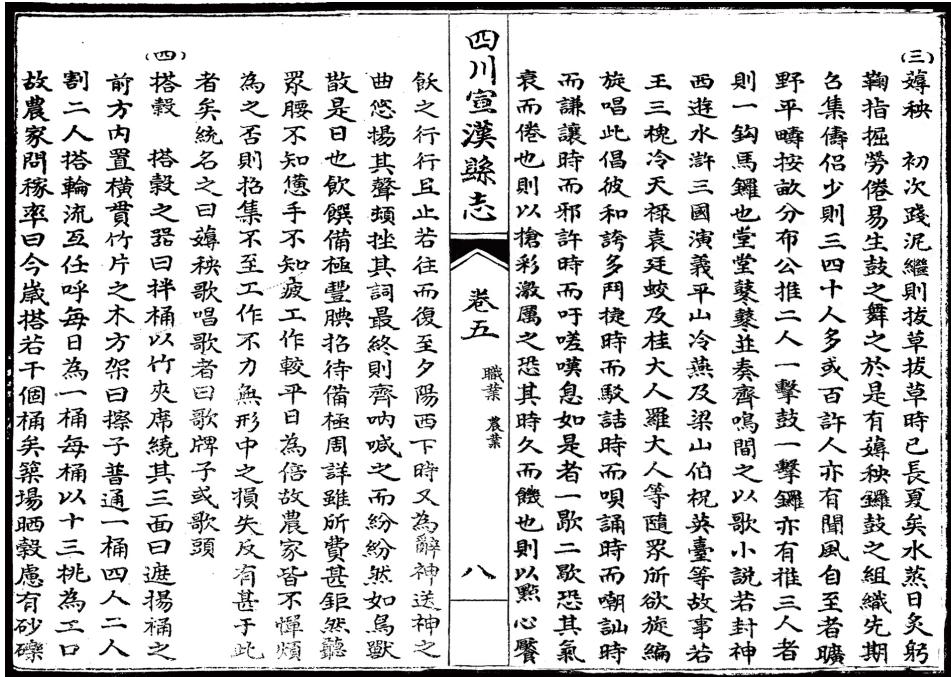 (三)薅秧 初次踐泥繼則拔草拔草時已長夏矣水蒸日炙躬
鞠指掘勞倦易生鼓之舞之於是有薅秧鑼鼓之組織先期
召集儔侶少則三四十人多或百許人亦有聞風自至者曠
野平疇按畝分布公推二人一擊鼓一擊鑼亦有推三人者
則一鈎馬鑼也堂堂鼕鼕並奏齊鳴間之以歌小說若封神
西遊水滸三國演義平山冷燕及梁山伯祝英臺等故事若
王三槐冷天祿袁廷蛟及桂大人羅大人等隨眾所欲旋編
旋唱此倡彼和誇多鬥捷時而駁詰時而唄誦時而嘲訕時
而謙讓時而邪許時而吁嗟嘆息如是者一歇二歇恐其氣
衰而倦也則以搶彩激厲之恐其時久而饑也則以點心饜
四川宣漢縣志
卷五
職業 農業
八
飫之行行且止若往而復至夕陽西下時又為辭神送神之
曲悠揚其聲頓挫其詞最終則齊吶喊之而紛紛然如鳥獸
散是日也飲饌備極豐腆招待備極周詳雖所費甚鉅然聽
眾腰不知憊手不知疲工作較平日為倍故農家皆不憚煩
為之否則招集不至工作不力無形中之損失反有甚于此
者矣統名之曰薅秧歌唱歌者曰歌牌子或歌頭
(四)搭穀 搭穀之器曰拌桶以竹夾席繞其三面曰遮揚桶之
前方內置橫貫竹片之木方架曰擦子普通一桶四人二人
割二人搭輪流互任呼每日為一桶每桶以十三挑為工口
故農家問稼率曰今歲搭若干個桶矣築場晒穀慮有砂礫